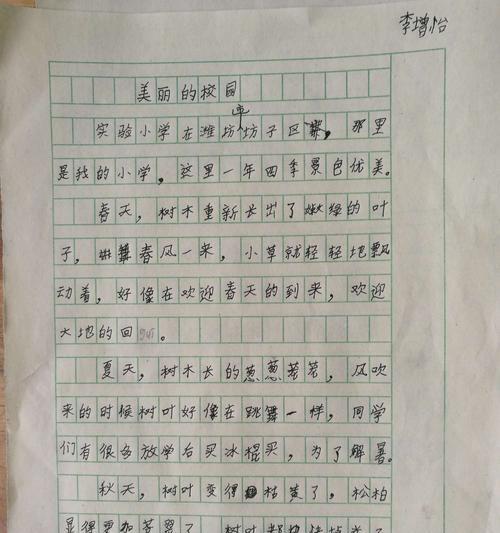 李增怡
美丽的校园
实验小学在潍坊市坊子区,那里
是我的小学。这里一年四季景色优美。
春天,树木重新长出了嫩绿的叶
子,春风一来,小草就轻轻地飘
动着,好像在欢迎春天的到来,欢迎
大地的回。
夏天,树木长的葱葱茏茏,风吹
来的时候树叶好像在跳舞一样,同学
们有很多放学后买冰棍买,为了解暑。
秋天,树叶变得枯黄了,松柏
显得更加苍翠了